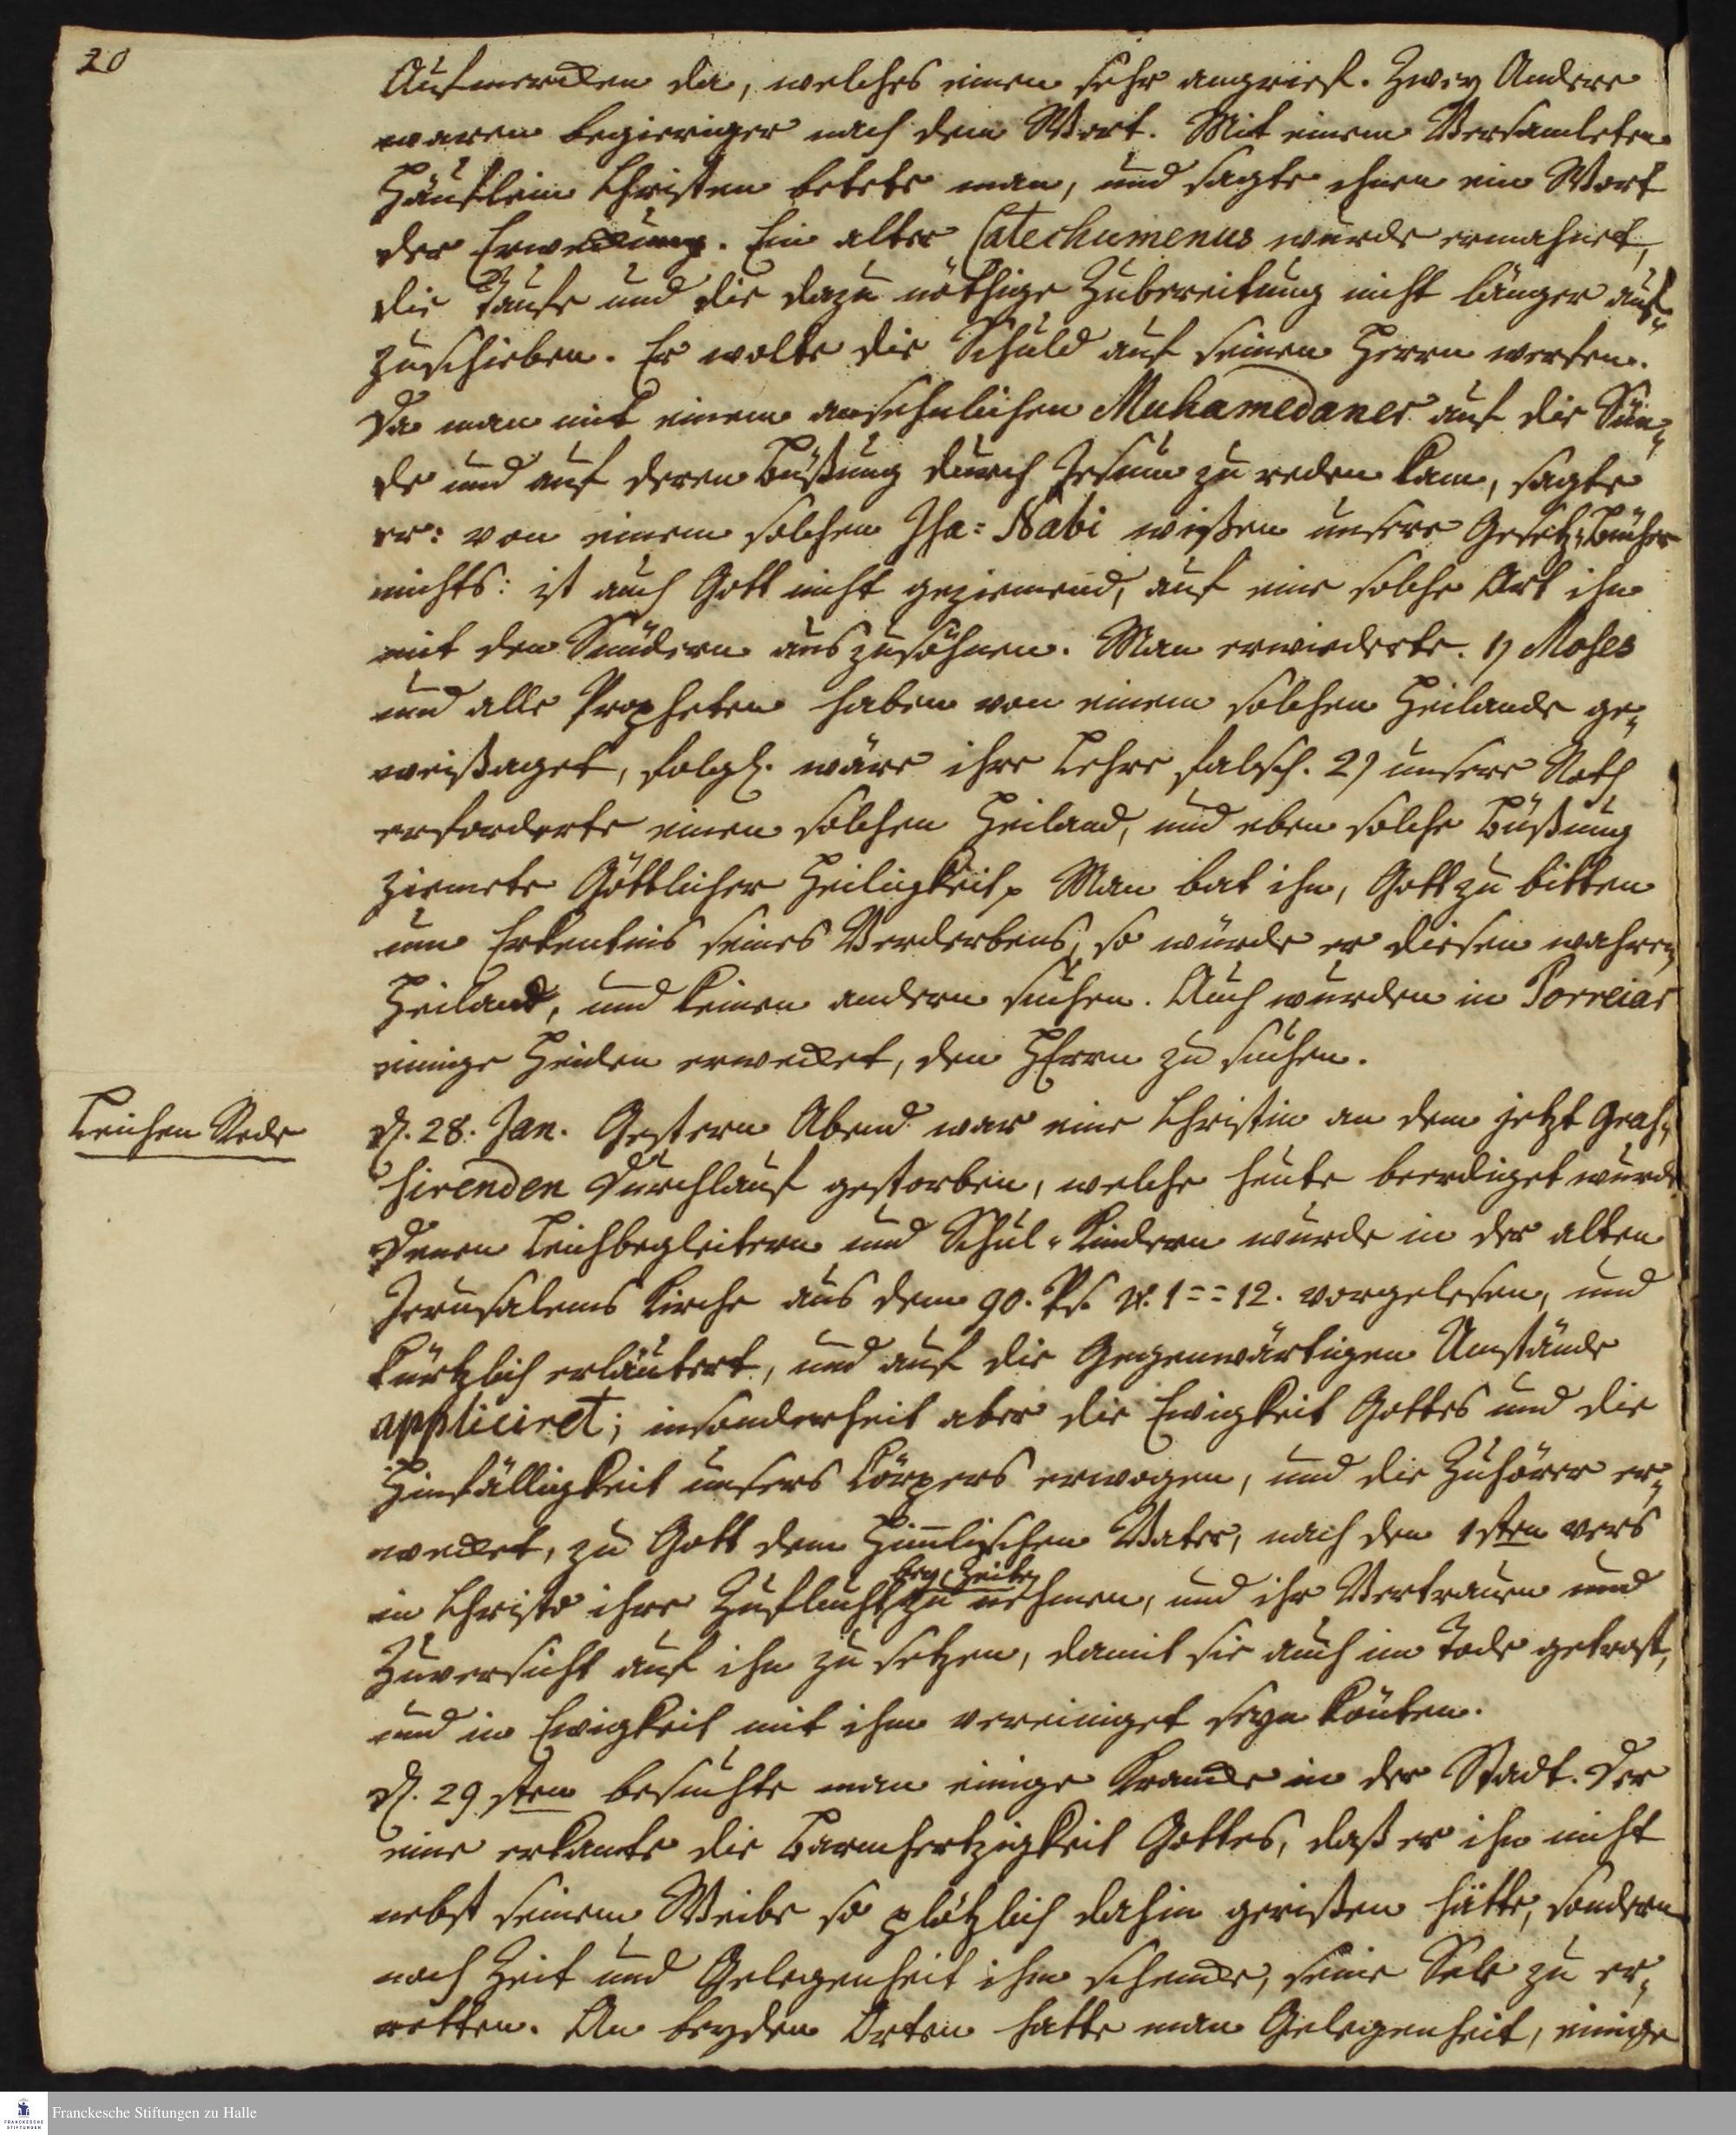 20
Aufmercken da, welches einen sehr angrief. Zwey Andere
waren begieriger nach dem Wort. Mit einem Versamleten
Häuflein Christen betete man, und sagte ihnen ein Wort
der Erweckung. Ein alter Catechumenus wurde ermahnet,
die Taufe und die dazu nöthige Zubereitung nicht länger auf-
zuschieben. Er wolte die Schuld auf seinen Herrn werfen.
Da man mit einem ansehnlichen Muhamedaner auf die Sün-
de und auf deren Büßung durch Jesum zu reden kam, sagte
er: von einem solchen Isa-Nabi wißen unsere Gesetz-Bücher
nichts: ist auch Gott nicht geziemend, auf eine solche Art ihn
mit den Sündern auszusöhnen. Man erwiederte. 1) Moses
und alle Propheten haben von einem solchen Heilande ge-
weißaget, folgl. wäre ihre Lehre falsch. 2) unsere Noth
erforderte einen solchen Heiland, und eben solche Büßung
ziemete Göttlicher Heiligkeit. Man bat ihn, Gott zu bitten
um Erkentnis seines Verderbens, so würde er diesen wahren
Heiland, und keinen andern suchen. Auch wurden in Porreiar
einige Heiden erwecket, den HErrn zu suchen.
Leichen Rede
d. 28. Jan. Gestern Abend war eine Christin an dem jetzt Gras-
sirenden Durchlauf gestorben, welche heute beerdiget wurde
Denen Leichbegleitern und Schul-Kindern wurde in der alten
Jerusalems Kirche aus dem 90. Ps. v. 1==12. vorgelesen, und
kürtzlich erläutert, und auf die Gegenwärtigen Umstände
appliciret; insonderheit aber die Ewigkeit Gottes und die
Hinfälligkeit unsers Körpers erwogen, und die Zuhörer er-
wecket, zu Gott dem Himlischen Vater, nach den 1sten vers
in Christo ihre Zuflucht bey Zeiten zu nehmen, und ihr Vertrauen und
Zuversicht auf ihn zu setzen, damit sie auch im Tode getrost,
und in Ewigkeit mit ihm vereiniget seyn könten.
d. 29sten besuchte man einige Krancke in der Stadt. Der
eine erkante die Barmhertzigkeit Gottes, daß er ihn nicht
nebst seinem Weibe so plötzlich dahin gerißen hätte, sondern
noch Zeit und Gelegenheit ihm schencke, seine Sele zu er-
retten. An beyden Orten hatte man Gelegenheit, einige
FRANCKESCHE
STIFTUNGEN
Franckesche Stiftungen zu Halle